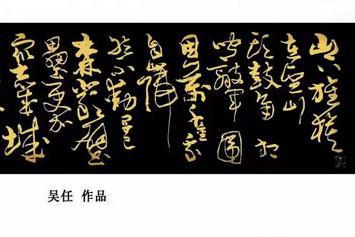 山下旌旗
在望山
头鼓角相
闻敌军围
困萬千重我
自巋
然不動早已
森嚴壁
壘更加
众志成城
吴任 作品